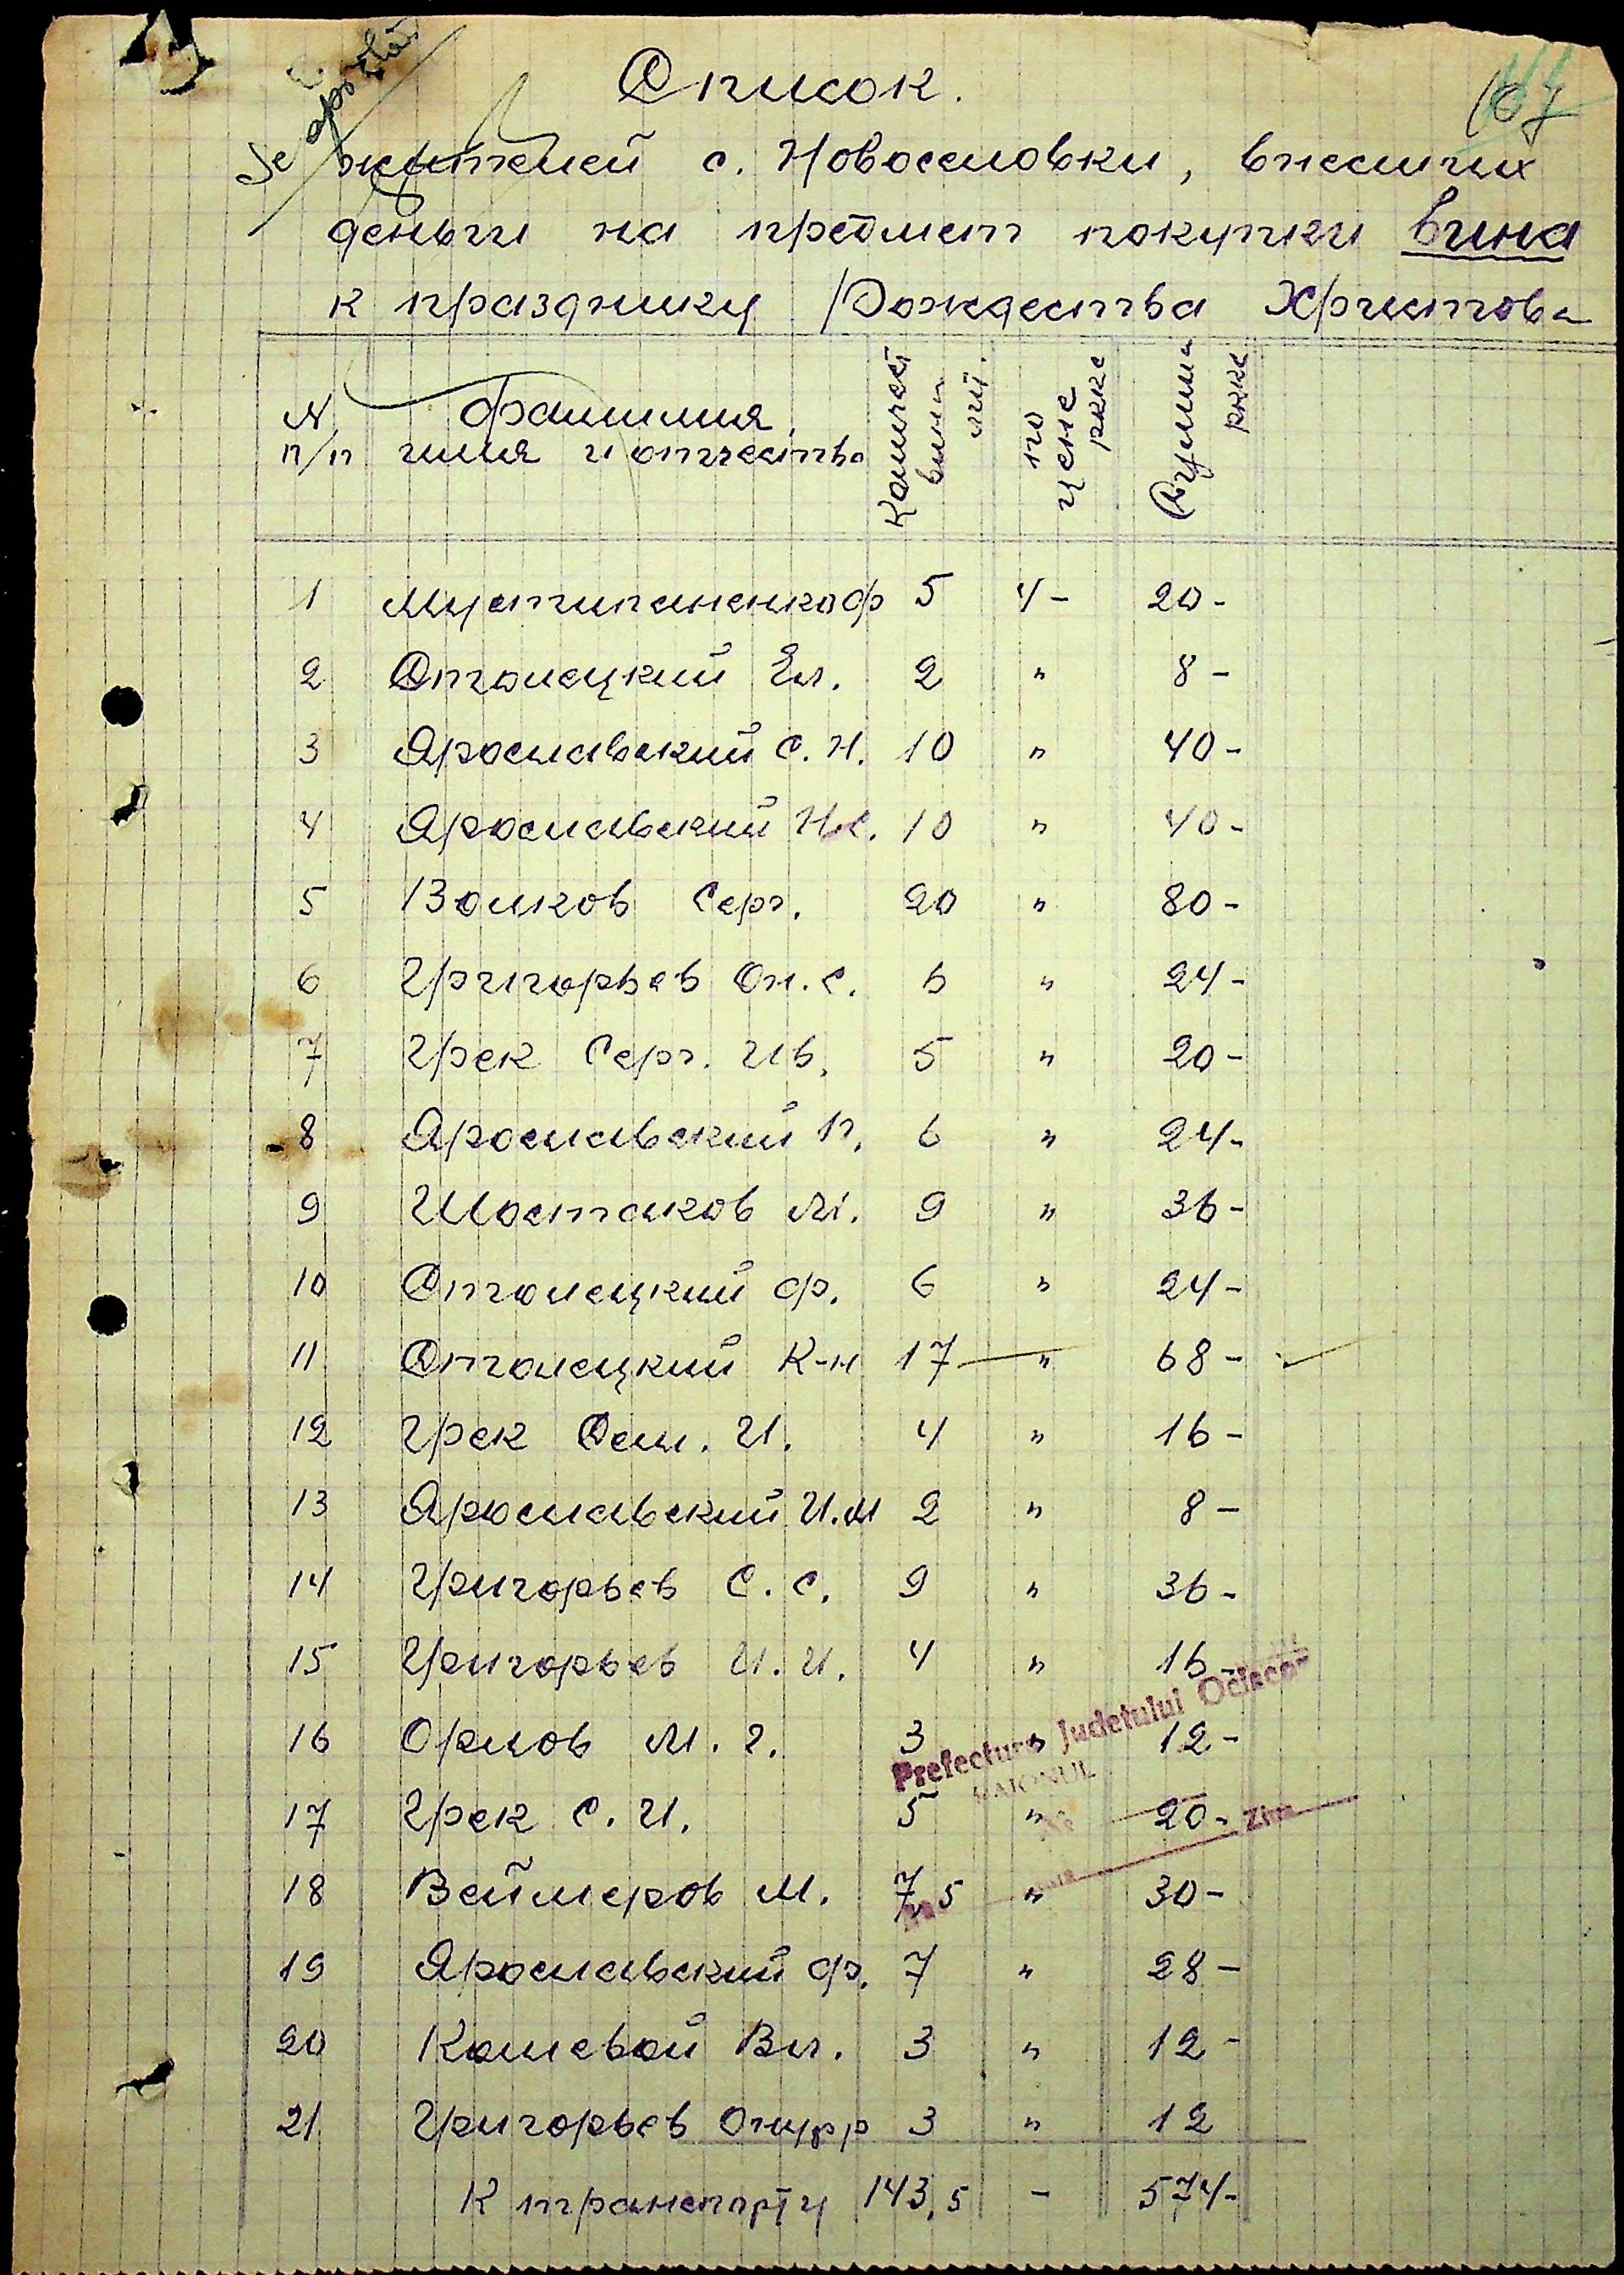 Se aprobă
107
Список.
жителей с. Новоселовки, внесших
деньги на предмет покупки вина
к празднику Рождества Христова
N п/п фамилия, имя и отчество Количест вина лит. по цене ркке Сумма ркке
1 Мустипаненко ф 5 4- 20-
2 Столецкий Ел. 2 " 8-
3 Ярославский С. Н. 10 " 40-
4 Ярославский Ник. 10 " 40-
5 Волков Серг. 20 " 80-
6 Григорьев Он. С. 6 " 24-
7 Грек Серг. Ив. 5 " 20-
8 Ярославский П. 6 " 24-
9 Шостаков М. 9 " 36-
10 Столецкий Ф. 6 " 24-
11 Столецкий К-н 17 " 68-
12 Грек Сем. И. 4 " 16-
13 Ярославский И. М 2 " 8-
14 Григорьев С. С. 9 " 36-
15 Григорьев И. И. 4 " 16-
16 Орлов М. Г. 3 " 12-
Prefectura Judetului Ociacov
RAIONUL
17 Грек С. И. 5 " 20-
No
Ziua
18 Веймеров М. 7,5 " 30-
19 Ярославский Ф. 7 " 28-
20 Кошевой Вл. 3 " 12-
21 Григорьев Онуфр 3 " 12
К транспорту 143,5 - 574-